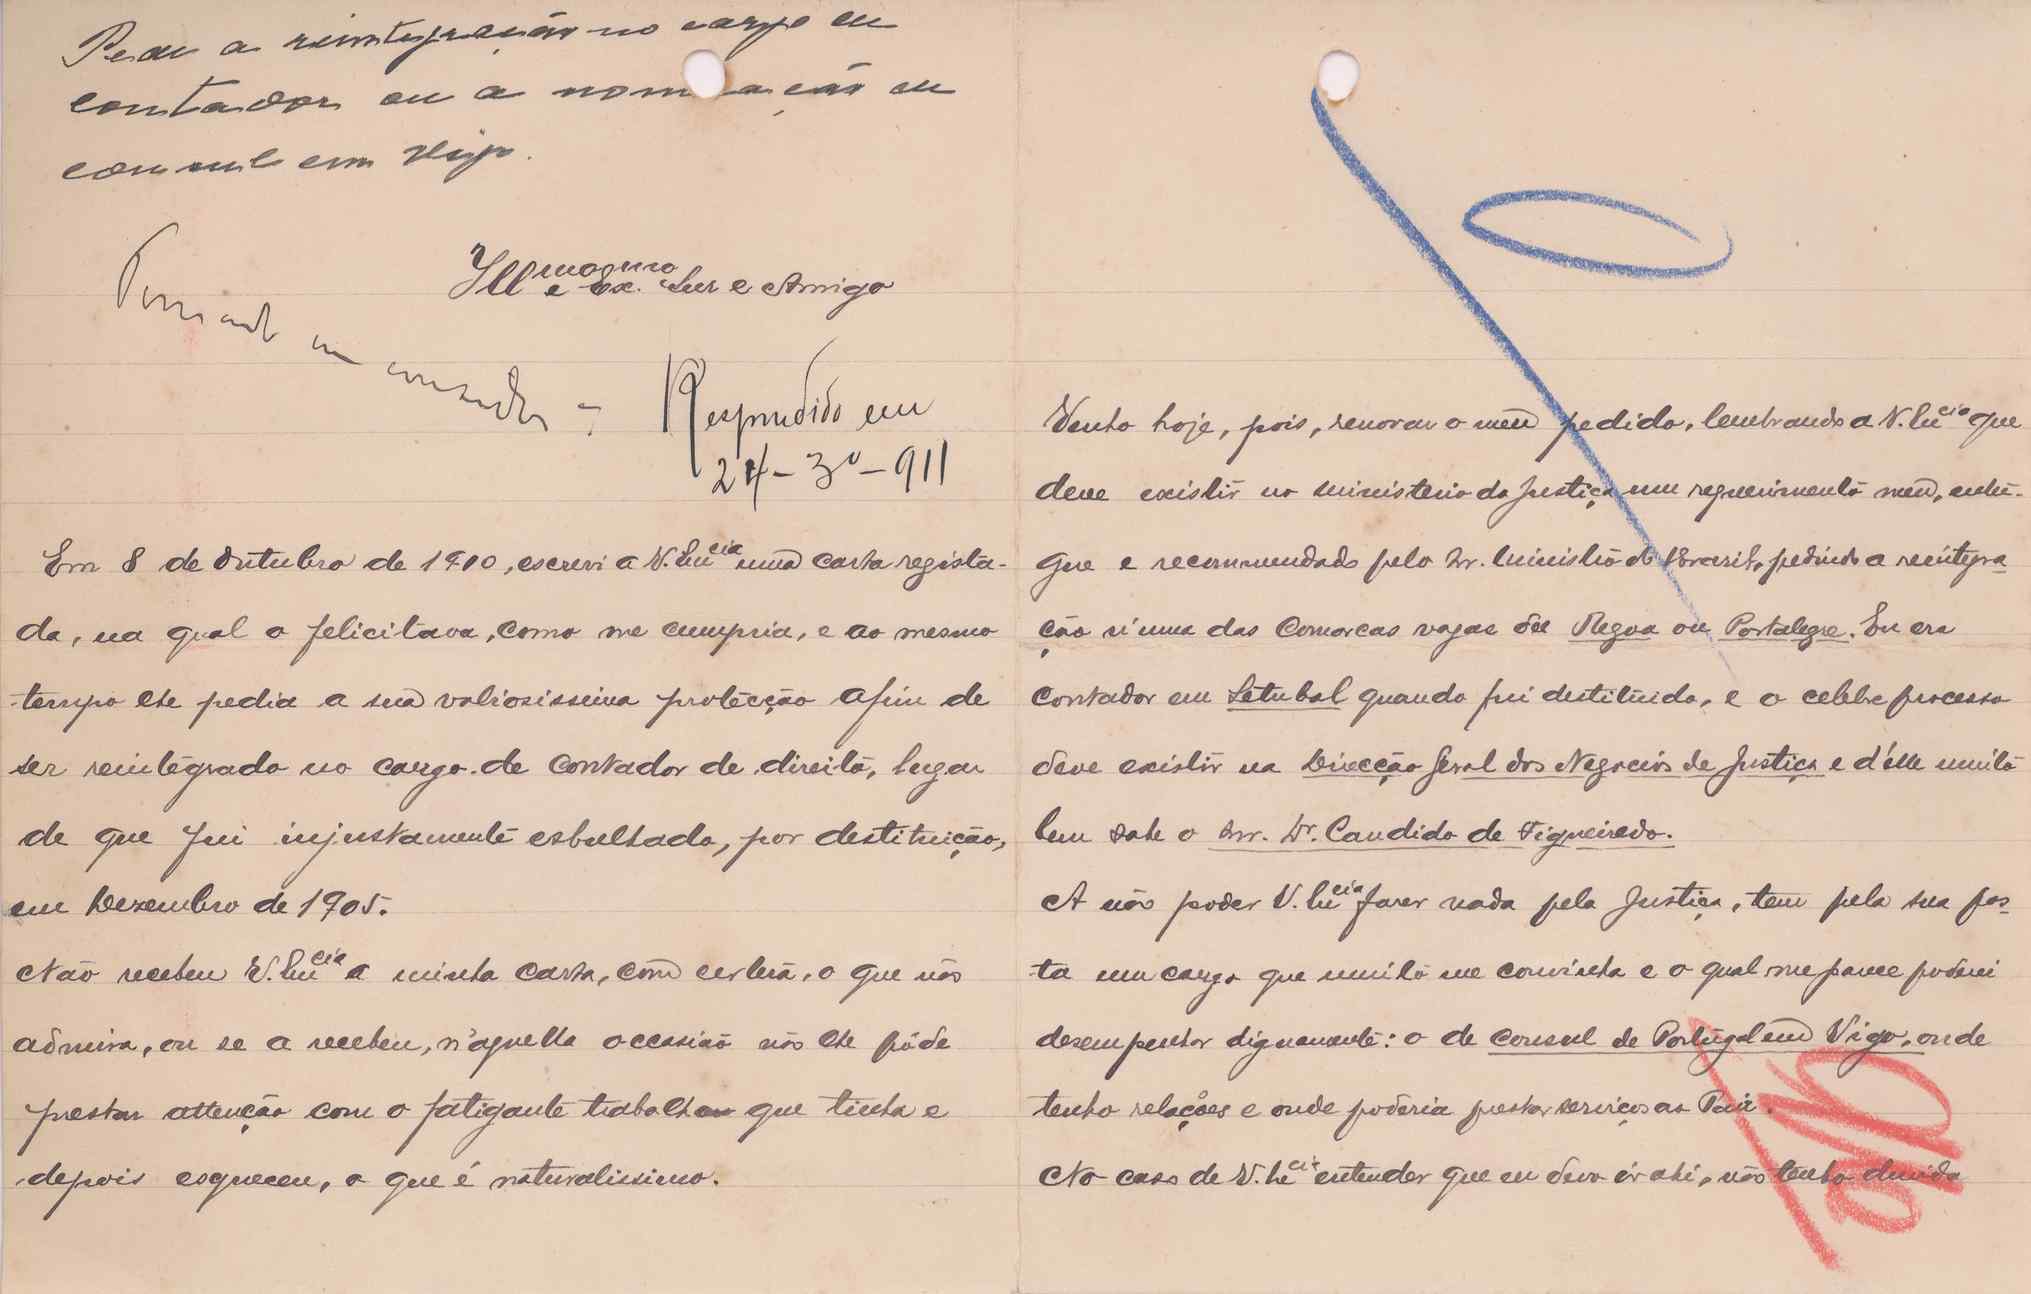 Pede a reintegração no cargo de
contador ou a nomeação de
consul em Vigo.
Ill.mo e Ex.mo Snr e Amigo
Tomado em consideração
Respondido em
24-3º-911
Em 8 de Outubro de 1910, escrevi a V. Ex.cia uma carta regista-
da, na qual o felicitava, como me cumpria, e ao mesmo
tempo lhe pedia a sua valiosissima protecção afim de
ser reintegrado no cargo de contador de direito, lugar
de que fui injustamente esbulhado, por destituição,
em Dezembro de 1905.
Não recebeu V. Ex.cia a minha carta, com certeza, o que não
admira, ou se a recebeu, n'aquella occasião não lhe pôde
prestar attenção com o fatigante trabalho que tinha e
depois esqueceu, o que é naturalissimo.
Venho hoje, pois, renovar o meu pedido, lembrando a V. Ex.cia que
deve existir no ministerio da Justiça um requerimento meu, entre-
gue e recommendado pelo Sr. Ministro do Brazil, pedindo a reintegra-
ção n'uma das Comarcas vagas de Regoa ou Portalegre. Eu era
contador em Setubal quando fui destituido, e o celebre processo
deve existir na Direcção Geral dos Negocios de Justiça e d'élle muito
bem sabe o Snr. Dr. Candido de Figueiredo.
A não poder V. Ex.cia fazer nada pela Justiça, tem pela sua pas-
ta um cargo que muito me convinha e o qual me parece poderei
desempenhar dignamente: o de consul de Portugal em Vigo, onde
tenho relações e onde poderia prestar serviços ao Paiz.
No caso de V. Ex.cia entender que eu devo ir ahi, não tenho duvida